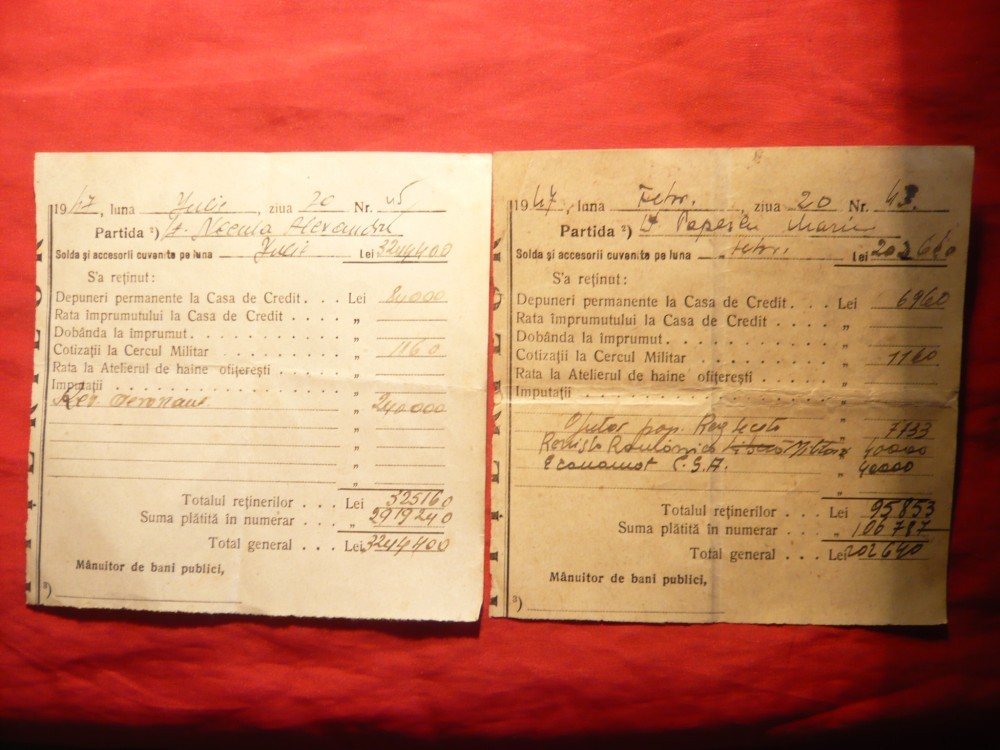 1947, luna Iulie, ziua 20 Nr. 45
Partida ²) Lt. Necula Alexandru
Solda și accesorii cuvenite pe luna Iulie Lei 3244400
S'a reținut:
Depuneri permanente la Casa de Credit . . Lei 84000
Rata împrumutului la Casa de Credit . . . . „
Dobânda la împrumut. . . . . . . . . . . „
Cotizații la Cercul Militar . . . . . . . . „ 1160
Rata la Atelierul de haine ofițerești . . . . „
Imputații . . . . . . . . . . . . . . . . „
Rev. 240000
„
„
„
Totalul reținerilor . . . Lei 325160
Suma plătită în numerar . . . „ 2919240
Total general . . . Lei 3244400
Mânuitor de bani publici,
³)
1947, luna Febr., ziua 20 Nr. 43.
Partida ²) Lt Popescu Marin
Solda și accesorii cuvenite pe luna Febr. Lei 202640
S'a reținut:
Depuneri permanente la Casa de Credit. . . Lei 6960
Rata împrumutului la Casa de Credit . . . . „
Dobânda la împrumut. . . . . . . . . . . „
Cotizații la Cercul Militar . . . . . . . . „ 1160
Rata la Atelierul de haine ofițerești . . . . „
Imputații . . . . . . . . . . . . . . . . „
Ajutor pop. „ 7733
Revista România „ 40000
Economat C.S.A. „ 40000
Totalul reținerilor . . . Lei 95853
Suma plătită în numerar . . . „ 106787
Total general . . . Lei 202640
Mânuitor de bani publici,
³)